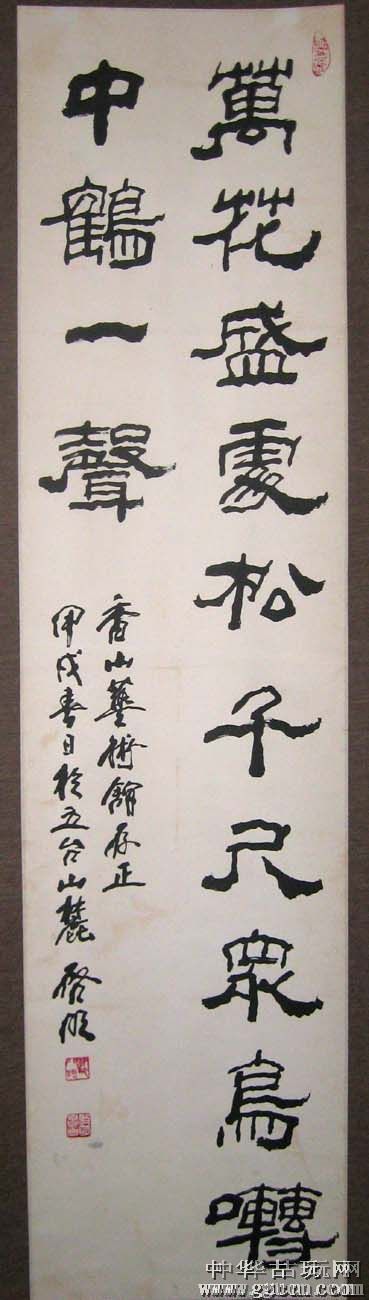 萬花盛處松千尺衆鳥囀
中鶴一聲
香山藝術館存正
甲戌春日於五台山麓 啓順
中华古玩网
www.gucn.com